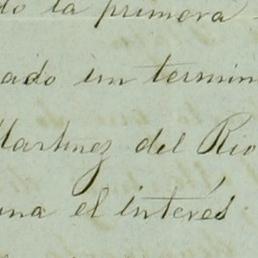 do la primera
ado un termin
Martinez del Rio
una el interés